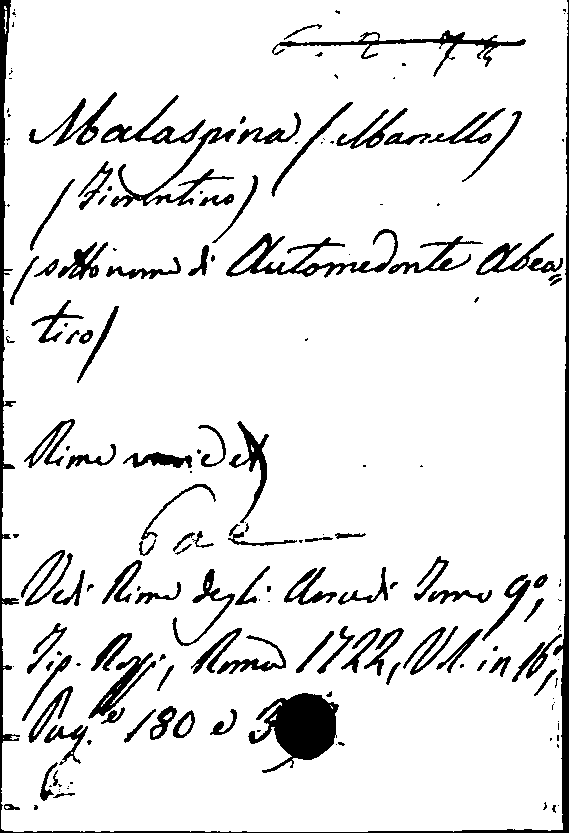 6. 2. 7
Malaspina (Marcello)
(Fiorentino)
(sotto nome di Automedonte Abea„
tico)
Rime varie
Vedi Rime degli Arcadi Tomo 9º,
Tip. Rossi, Roma 1722, Vol. in 16º,
Pag.e 180 e 3